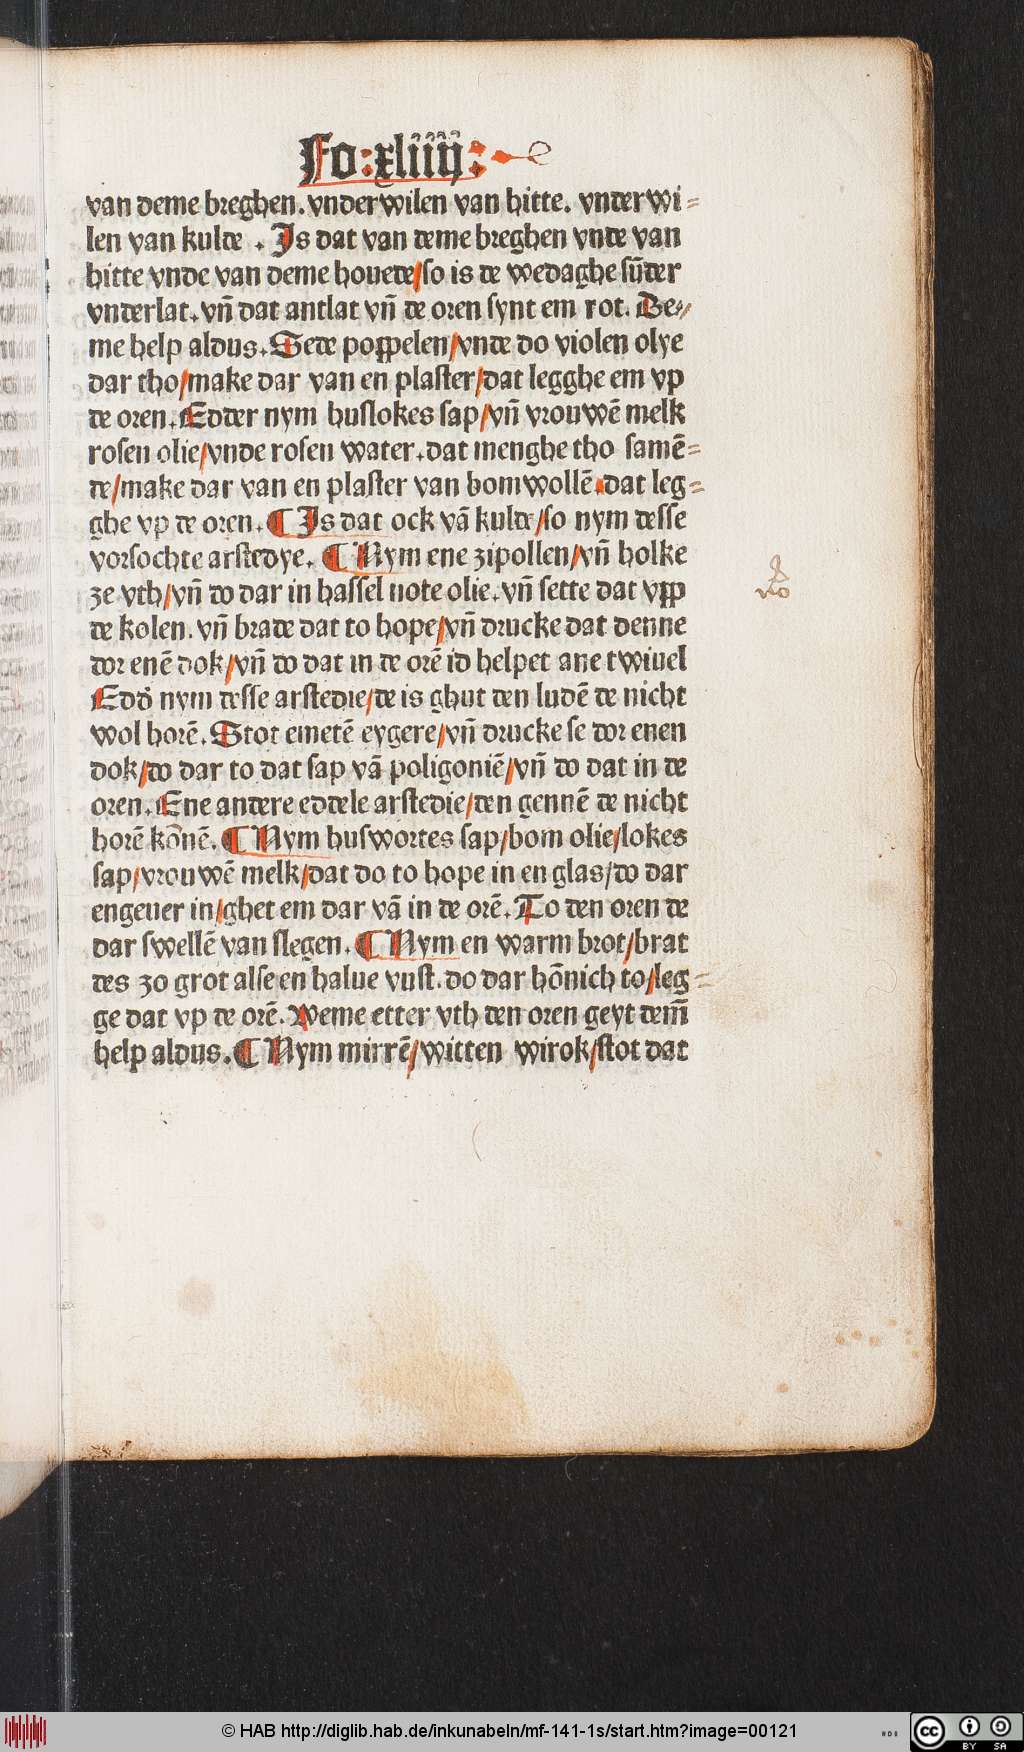 Fo:xliiij:
van deme breghen. vnderwilen van hitte. vnderwi=
len van kulde . Js dat van deme breghen vnde van
hitte vnde van deme houede/so is de wedaghe sūder
vnderlat. vn̄ dat antlat vn̄ de oren synt em rot. De=
me help aldus. Sede poppelen/vnde do violen olye
dar tho/make dar van en plaster/dat legghe em vp
de oren. Edder nym huslokes sap/vn̄ vrouwē melk
rosen olie/vnde rosen water. dat menghe tho samē=
de/make dar van en plaster van bomwollē. dat leg=
ghe vp de oren. ¶ Js dat ock vā kulde/so nym desse
vorsochte arstedye. ¶ Nym ene zipollen/vn̄ holke
ze vth/vn̄ do dar in hassel note olie. vn̄ sette dat vpp
de kolen. vn̄ brade dat to hope/vn̄ drucke dat denne
dor enē dok/vn̄ do dat in de orē id helpet ane twiuel
Edd' nym desse arstedie/de is ghut den ludē de nicht
wol horē. Stot emetē eygere/vn̄ drucke se dor enen
dok/do dar to dat sap vā poligoniē/vn̄ do dat in de
oren. Ene andere eddele arstedie/den gennē de nicht
horē kōnē. ¶ Nym huswortes sap/bom olie/lokes
sap/vrouwē melk/dat do to hope in en glas/do dar
engeuer in/ghet em dar vā in de orē. To den oren de
dar swellē van slegen. ¶ Nym en warm brot/brat
des zo grot alse en halue vust. do dar hōnich to/leg=
ge dat vp de orē. Weme etter vth den oren geyt dem̄
help aldus. ¶ Nym mirrē/witten wirok/stot dat
© HAB http://diglib.hab.de/inkunabeln/mf-141-1s/start.htm?image=00121
HAB
cc BY SA